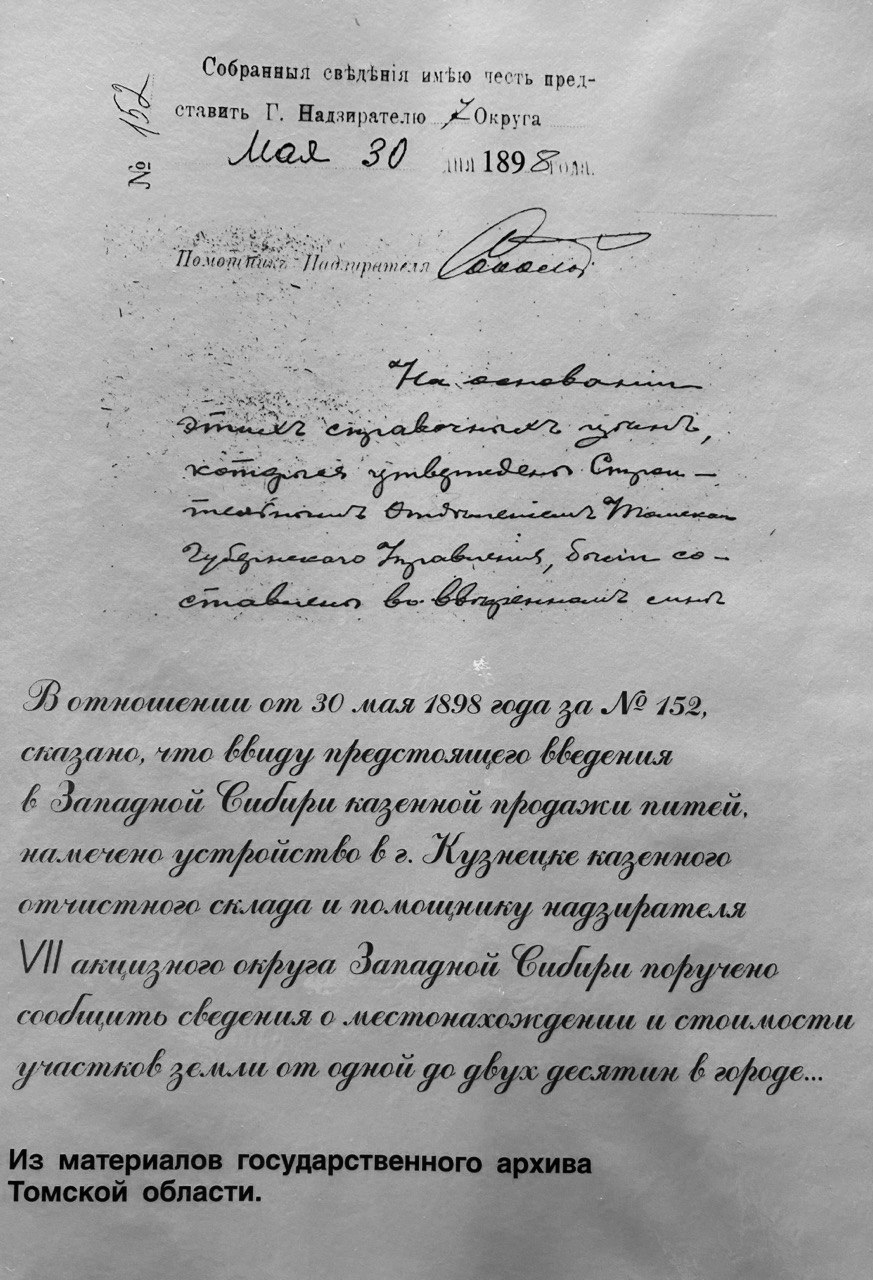 № 152
Собранныя свѣдѣнія имѣю честь пред-
ставить Г. Надзирателю 7 Округа
Мая 30 дня 1898 года.
Помощникъ Надзирателя
На основаніи
этихъ справочныхъ цѣнъ,
которыя утверждены Строи-
тельнымъ Отдѣленіемъ Томскаго
Губернскаго Управленія, были со-
ставлены во ввѣренномъ мнѣ
В отношении от 30 мая 1898 года за № 152,
сказано, что ввиду предстоящего введения
в Западной Сибири казенной продажи питей,
намечено устройство в г. Кузнецке казенного
отчистного склада и помощнику надзирателя
VII акцизного округа Западной Сибири поручено
сообщить сведения о местонахождении и стоимости
участков земли от одной до двух десятин в городе...
Из материалов государственного архива
Томской области.